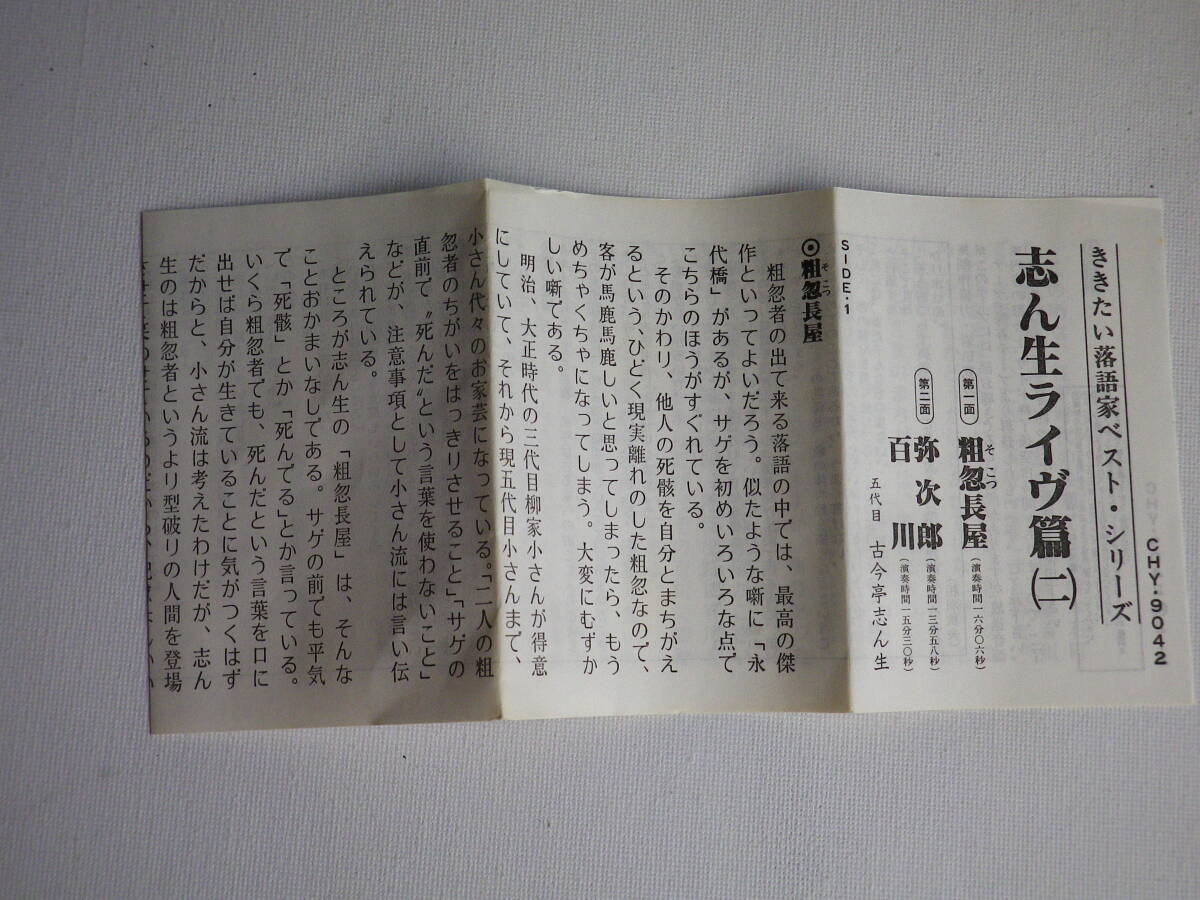 CHY・9042
ききたい落語家ベスト・シリーズ
志ん生ライヴ篇(二)
第一面 粗忽長屋(演奏時間一六分〇六秒)
そこつ
第二面 弥次郎(演奏時間一三分五八秒)
百川(演奏時間一五分三〇秒)
五代目 古今亭志ん生
SIDE・1
◉粗忽長屋
そこつ
粗忽者の出て来る落語の中では、最高の傑
作といってよいだろう。似たような噺に「永
代橋」があるが、サゲを初めいろいろな点で
こちらのほうがすぐれている。
そのかわり、他人の死骸を自分とまちがえ
るという、ひどく現実離れのした粗忽なので、
客が馬鹿馬鹿しいと思ってしまったら、もう
めちゃくちゃになってしまう。大変にむずか
しい噺である。
明治、大正時代の三代目柳家小さんが得意
にしていて、それから現五代目小さんまで、
小さん代々のお家芸になっている。「二人の粗
忽者のちがいをはっきりさせること」「サゲの
直前で〝死んだ〟という言葉を使わないこと」
などが、注意事項として小さん流には言い伝
えられている。
ところが志ん生の「粗忽長屋」は、そんな
ことおかまいなしである。サゲの前でも平気
で「死骸」とか「死んでる」とか言っている。
いくら粗忽者でも、死んだという言葉を口に
出せば自分が生きていることに気がつくはず
だからと、小さん流は考えたわけだが、志ん
生のは粗忽者というより型破りの人間を登場